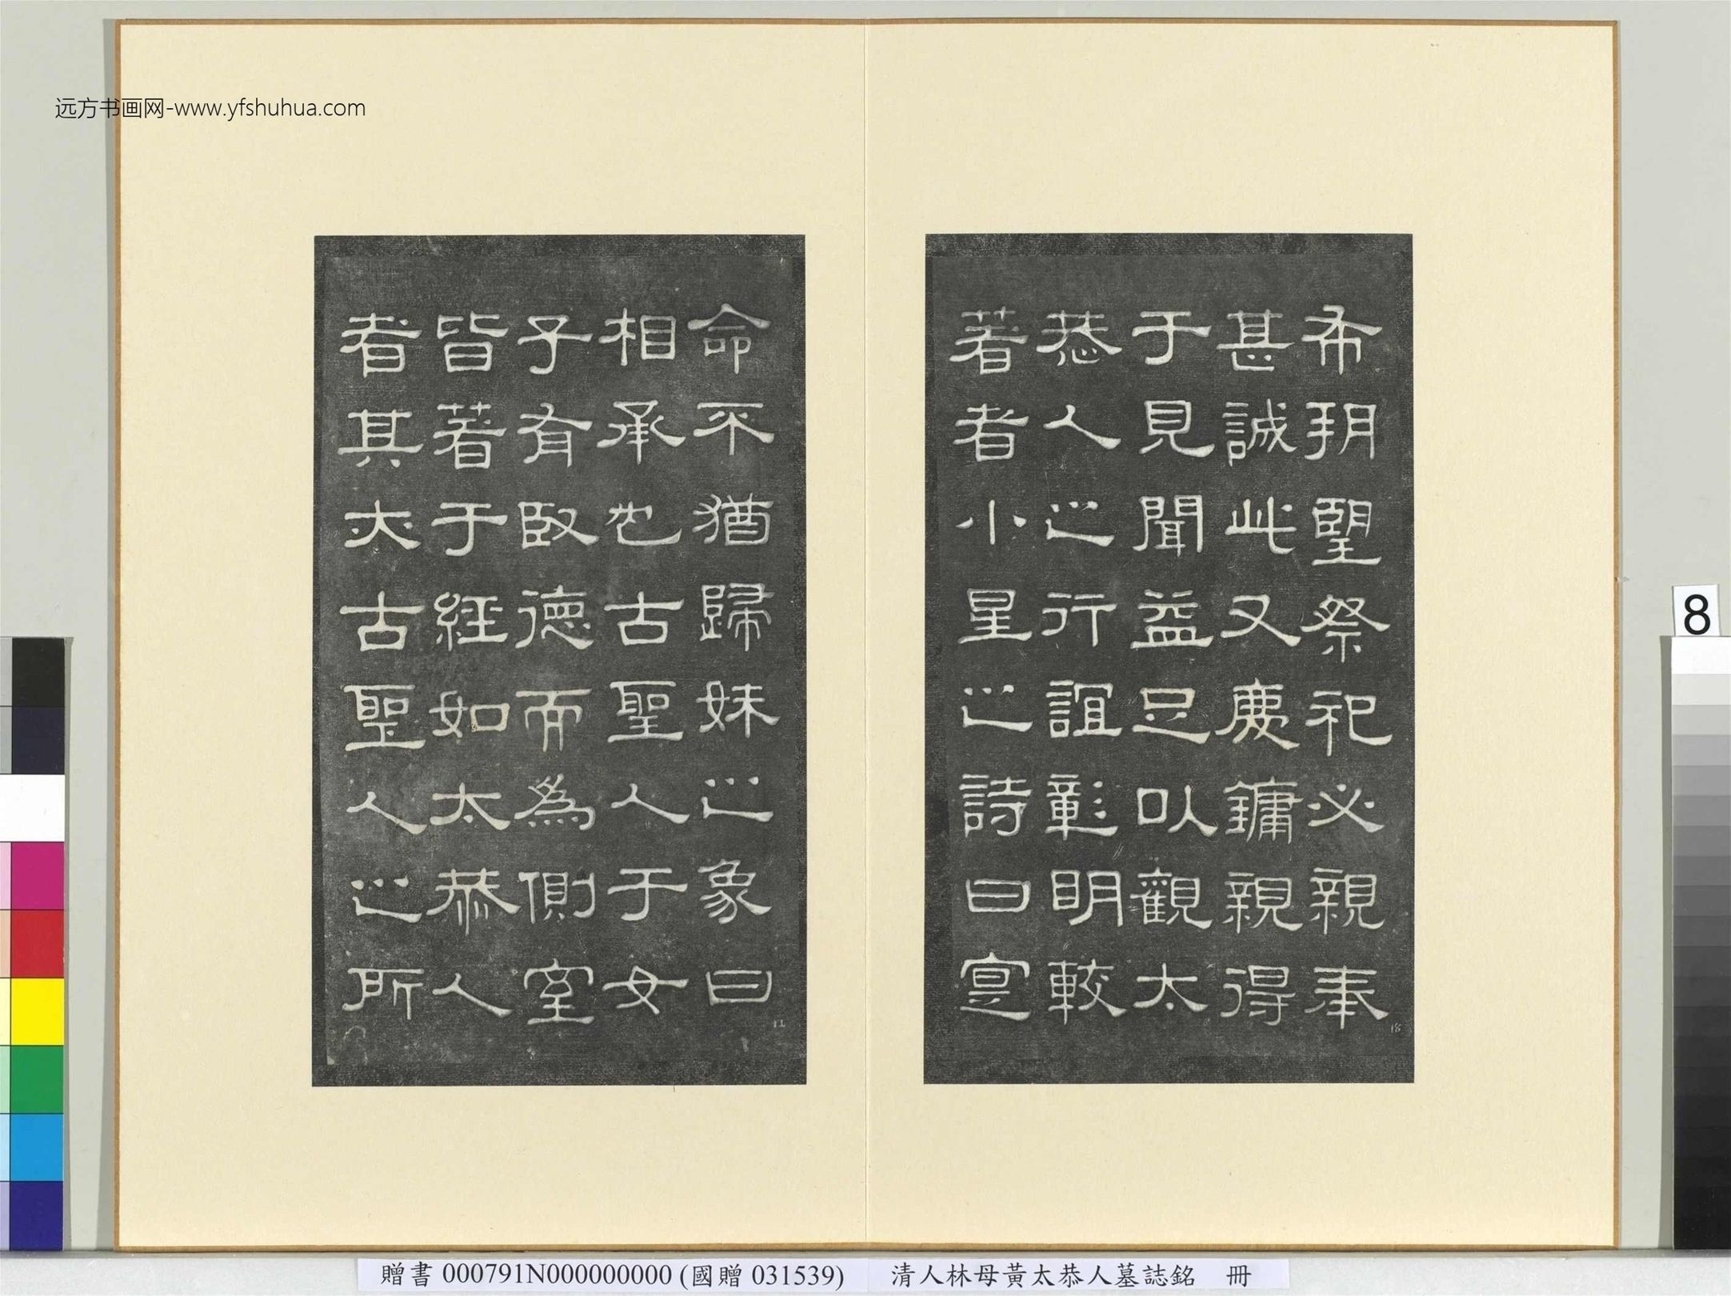 远方书画网-www.yfshuhua.com
希朔望祭祀必親奉
甚誠此又慶鏞親得
于見聞益足以觀太
恭人之行誼彰明較
著者小星之詩曰寔
命不猶歸妹之象曰
相承也古聖人于女
子有取德而為側室
皆著于經如太恭人
者其夫古聖人之所
8
贈書 000791N000000000 (國贈 031539) 清人林母黃太恭人墓誌銘 冊